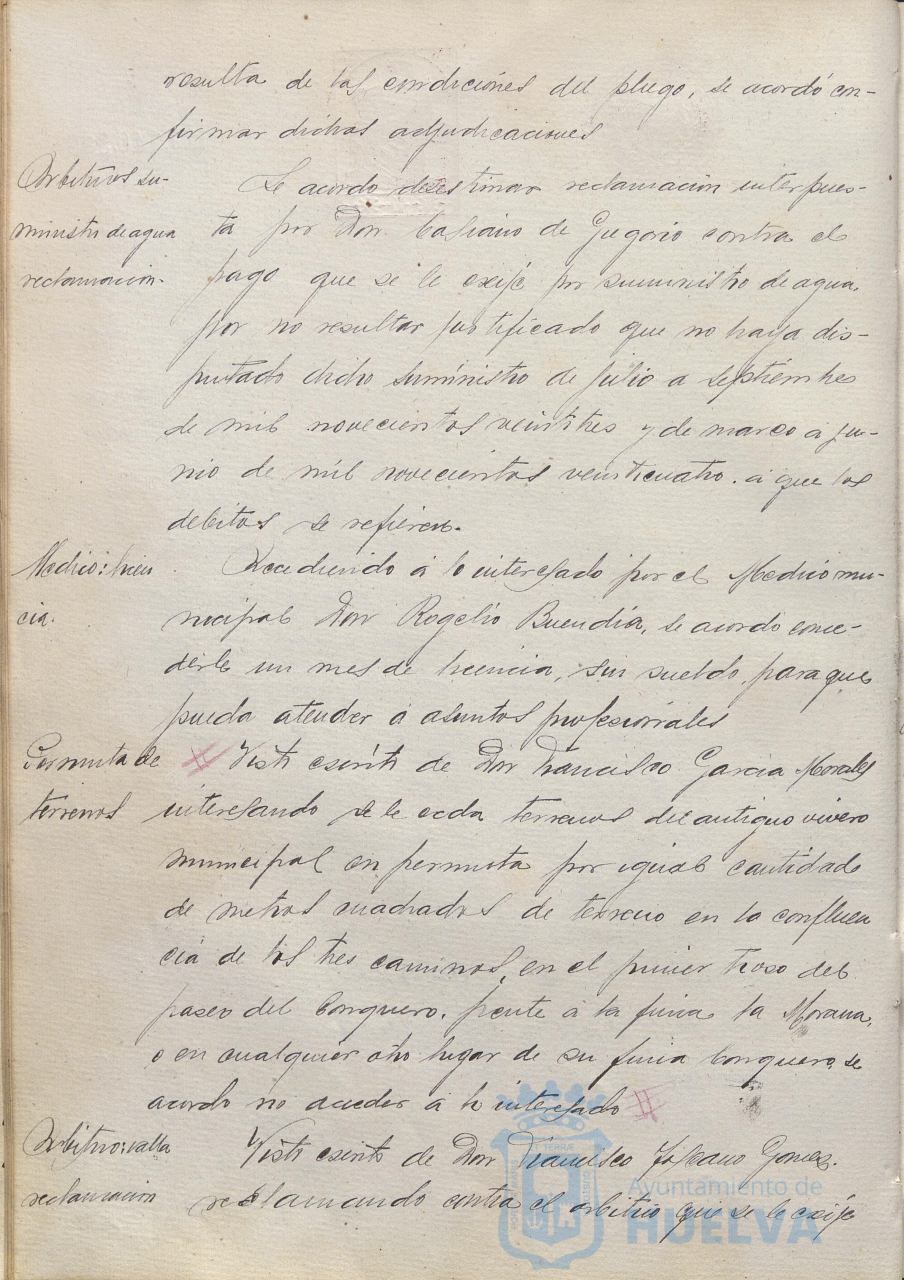 resulta de las condiciones del pliego, se acordó con-
firmar dichas adjudicaciones
Arbitrios su-
ministro de agua
reclamacion.
Se acordo desestimar reclamacion interpues-
ta por Don Casiano de Gregorio contra el
pago que se le exije por suministro de agua,
por no resultar justificado que no haya dis-
frutado dicho suministro de julio a septiembre
de mil novecientos veintitres y de marzo a ju-
nio de mil novecientos veinticuatro. a que los
debitos se refieren.
Medico: licen
cia.
Accediendo á lo interesado por el Medico mu-
nicipal Don Rogelio Buendia, se acordo conce-
derle un mes de licencia, sin sueldo, para que
pueda atender a asuntos profesionales
Permuta de
terrenos
Visto escrito de Don Francisco Garcia Morales
interesando se le ceda terrenos del antiguo vivero
municipal en permuta por igual cantidad
de metros cuadrados de terreno en la confluen
cia de los tres caminos, en el primer trozo del
paseo del Conquero, frente á la finca la Morana,
o en cualquier otro lugar de su finca Conquero, se
acordo no acceder á lo interesado
Arbitrio: valla
reclamacion
Visto escrito de Don Francisco Toscano Gomez.
reclamando contra el arbitrio que se le exije
Ayuntamiento de
HUELVA